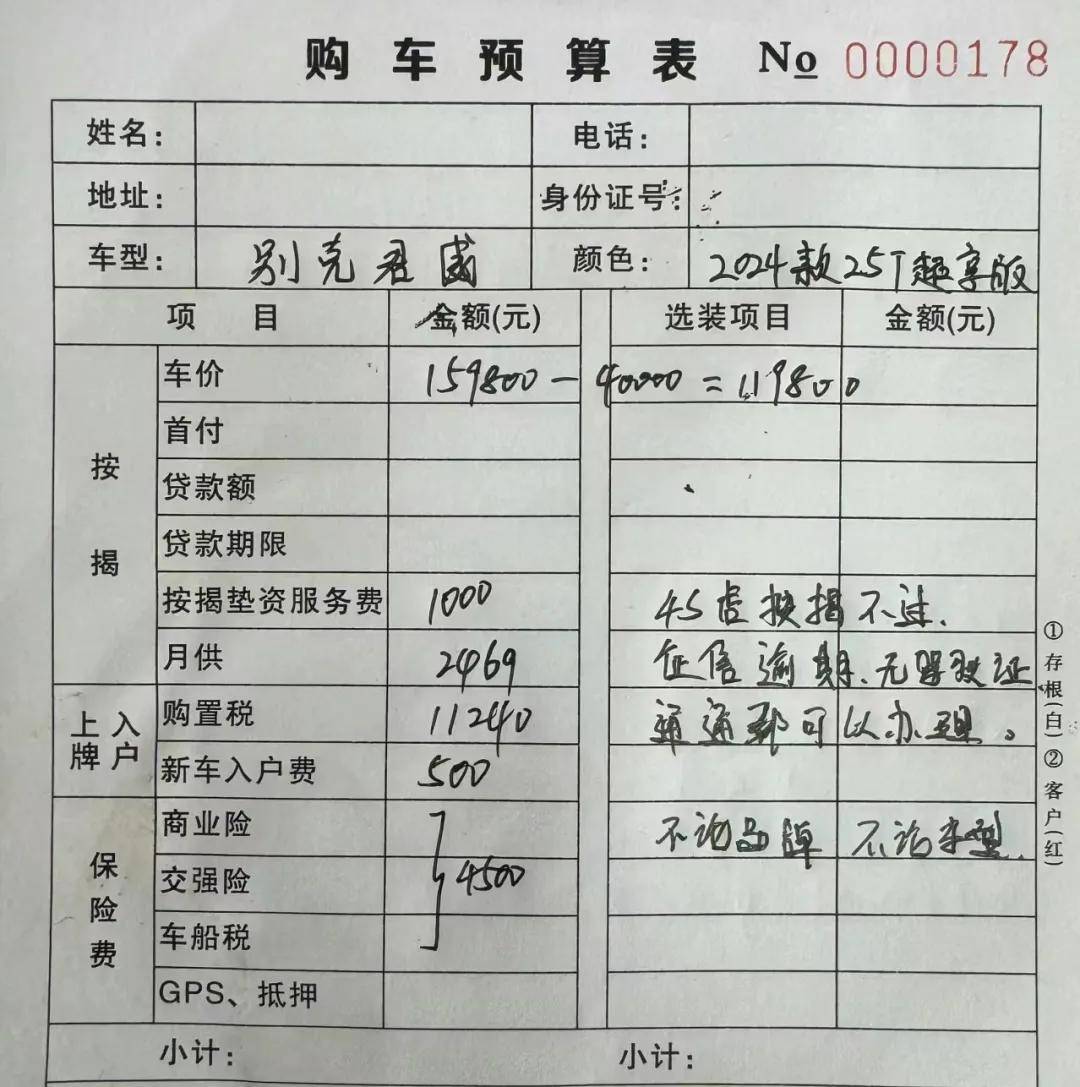 购车预算表 No 0000178
姓名： 电话：
地址： 身份证号：
车型： 别克君威 颜色： 2024款25T超享版
项 目 金额(元) 选装项目 金额(元)
按揭
车价 159800-40000=119800
首付
贷款额
贷款期限
按揭垫资服务费 1000 4S店按揭不过.
月供 2469 征信逾期、无驾驶证
上牌入户
购置税 11240 通通都可以办理。
新车入户费 500
保险费
商业险 不论品牌 不论车型.
交强险 4500
车船税
GPS、抵押
小计： 小计：
①存根(白)②客户(红)